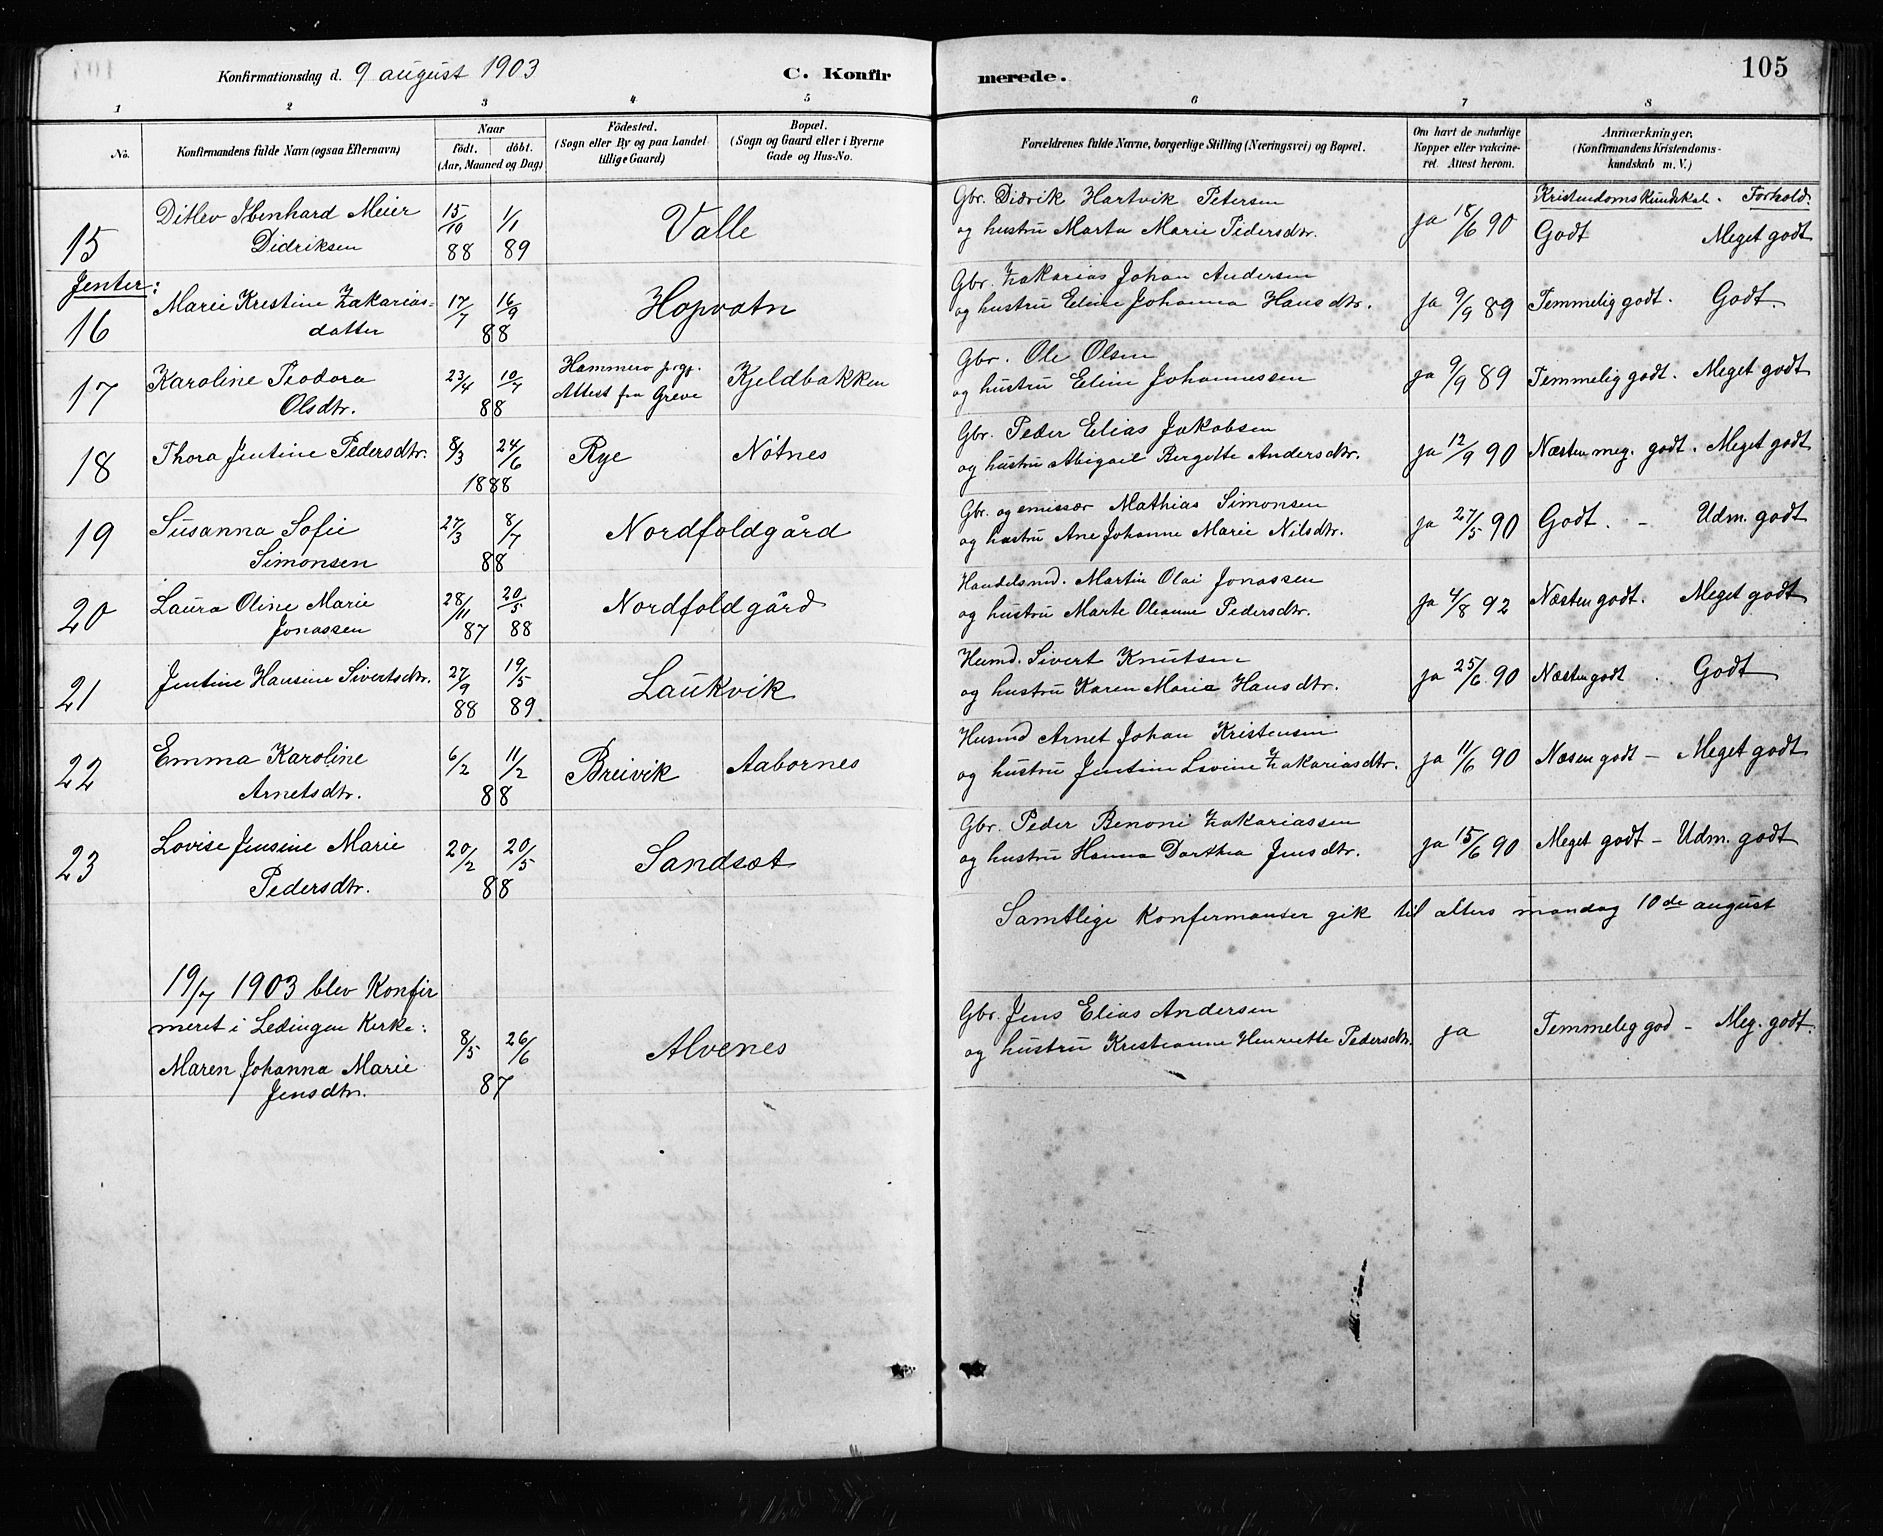 Konfirmationsdag d. 9 august 1903
C. Konfirmerede.
105
1 2 3 4 5 6 7 8
No.
Konfirmandens fulde Navn (ogsaa Efternavn)
Naar
födt. döbt.
(Aar, Maaned og Dag)
Födested.
(Sogn eller By og paa Landet
tillige Gaard)
Bopæl.
(Sogn og Gaard eller i Byerne
Gade og Hus-No.
Forældrenes fulde Navne, borgerlige Stilling (Næringsvei) og Bopæl.
Om havt de naturlige
Kopper eller vakcine-
ret. Attest herom.
Anmærkninger.
(Konfirmandens Kristendoms-
kundskab m. V.)
Kristendomskundskab. Forhold.
15 Ditlev Ibenhard Meier
Didriksen
15/10 88 1/1 89
Valle
Gbr. Didrik Hartvik Petersen
og hustru Marta Marie Pedersdtr.
ja 18/6 90
Godt Meget godt
Jenter:
16 Marie Kristine Zakarias-
datter
17/7 16/9
88
Hopvatn
Gbr. Zakarias Johan Andersen
og hustru Eline Johanna Hansdtr.
ja 9/9 89
Temmelig godt. Godt.
17 Karoline Teodora
Olsdtr.
23/4 10/7
88
Hammerø prgj.
Attest fra Greve
Kjeldbakken
Gbr. Ole Olsen
og hustru Eline Johannessen
ja 9/9 89
Temmelig godt. Meget godt
18 Thora Jentine Pedersdtr.
8/3 24/6
1888
Rye Nötnes
Gbr. Peder Elias Jakobsen
og hustru Abigael Bergitte Andersdtr.
ja 12/9 90
Næsten meg. godt. Meget godt
19 Susanna Sofie
Simonsen
27/3 8/7
88
Nordfoldgård
Gbr. og emissær Mathias Simonsen
og hustru Ane Johanne Marie Nilsdtr.
ja 27/5 90
Godt. - Udm. godt
20 Laura Oline Marie
Jonassen
28/11 87 20/5 88
Nordfoldgård
Handelsmd. Martin Olai Jonassen
og hustru Marte Oleanna Pedersdtr.
ja 4/8 92
Næsten godt. Meget godt
21 Jentine Hansine Sivertsdtr.
27/9 88 19/5 89.
Laukvik
Husmd. Sivert Knutsen
og hustru Karen Marie Hansdtr.
ja 25/6 90
Næsten godt . Godt
22 Emma Karoline
Arnetsdtr.
6/2 11/2
88
Breivik Aabornes
Husmd Arnet Johan Kristensen
og hustru Jentine Lovine Zakariasdtr.
ja 11/6 90
Næsen godt - Meget godt
23 Lovise Jensine Marie
Pedersdtr.
20/2 20/5
88
Sandsæt
Gbr. Peder Benoni Zakariassen
og hustru Hanna Dorthea Jensdtr.
ja 15/6 90
Meget godt - Udm. godt
Samtlige Konfirmanter gik til alters mandag 10de august
19/7 1903 blev Konfir
meret i Lødingen Kirke:
Maren Johanna Marie
Jensdtr.
8/5 26/6
87
Alvenes
Gbr. Jens Elias Andersen
og hustru Kristianne Henriette Pedersdtr.
ja
Temmelig god - Meg. godt.